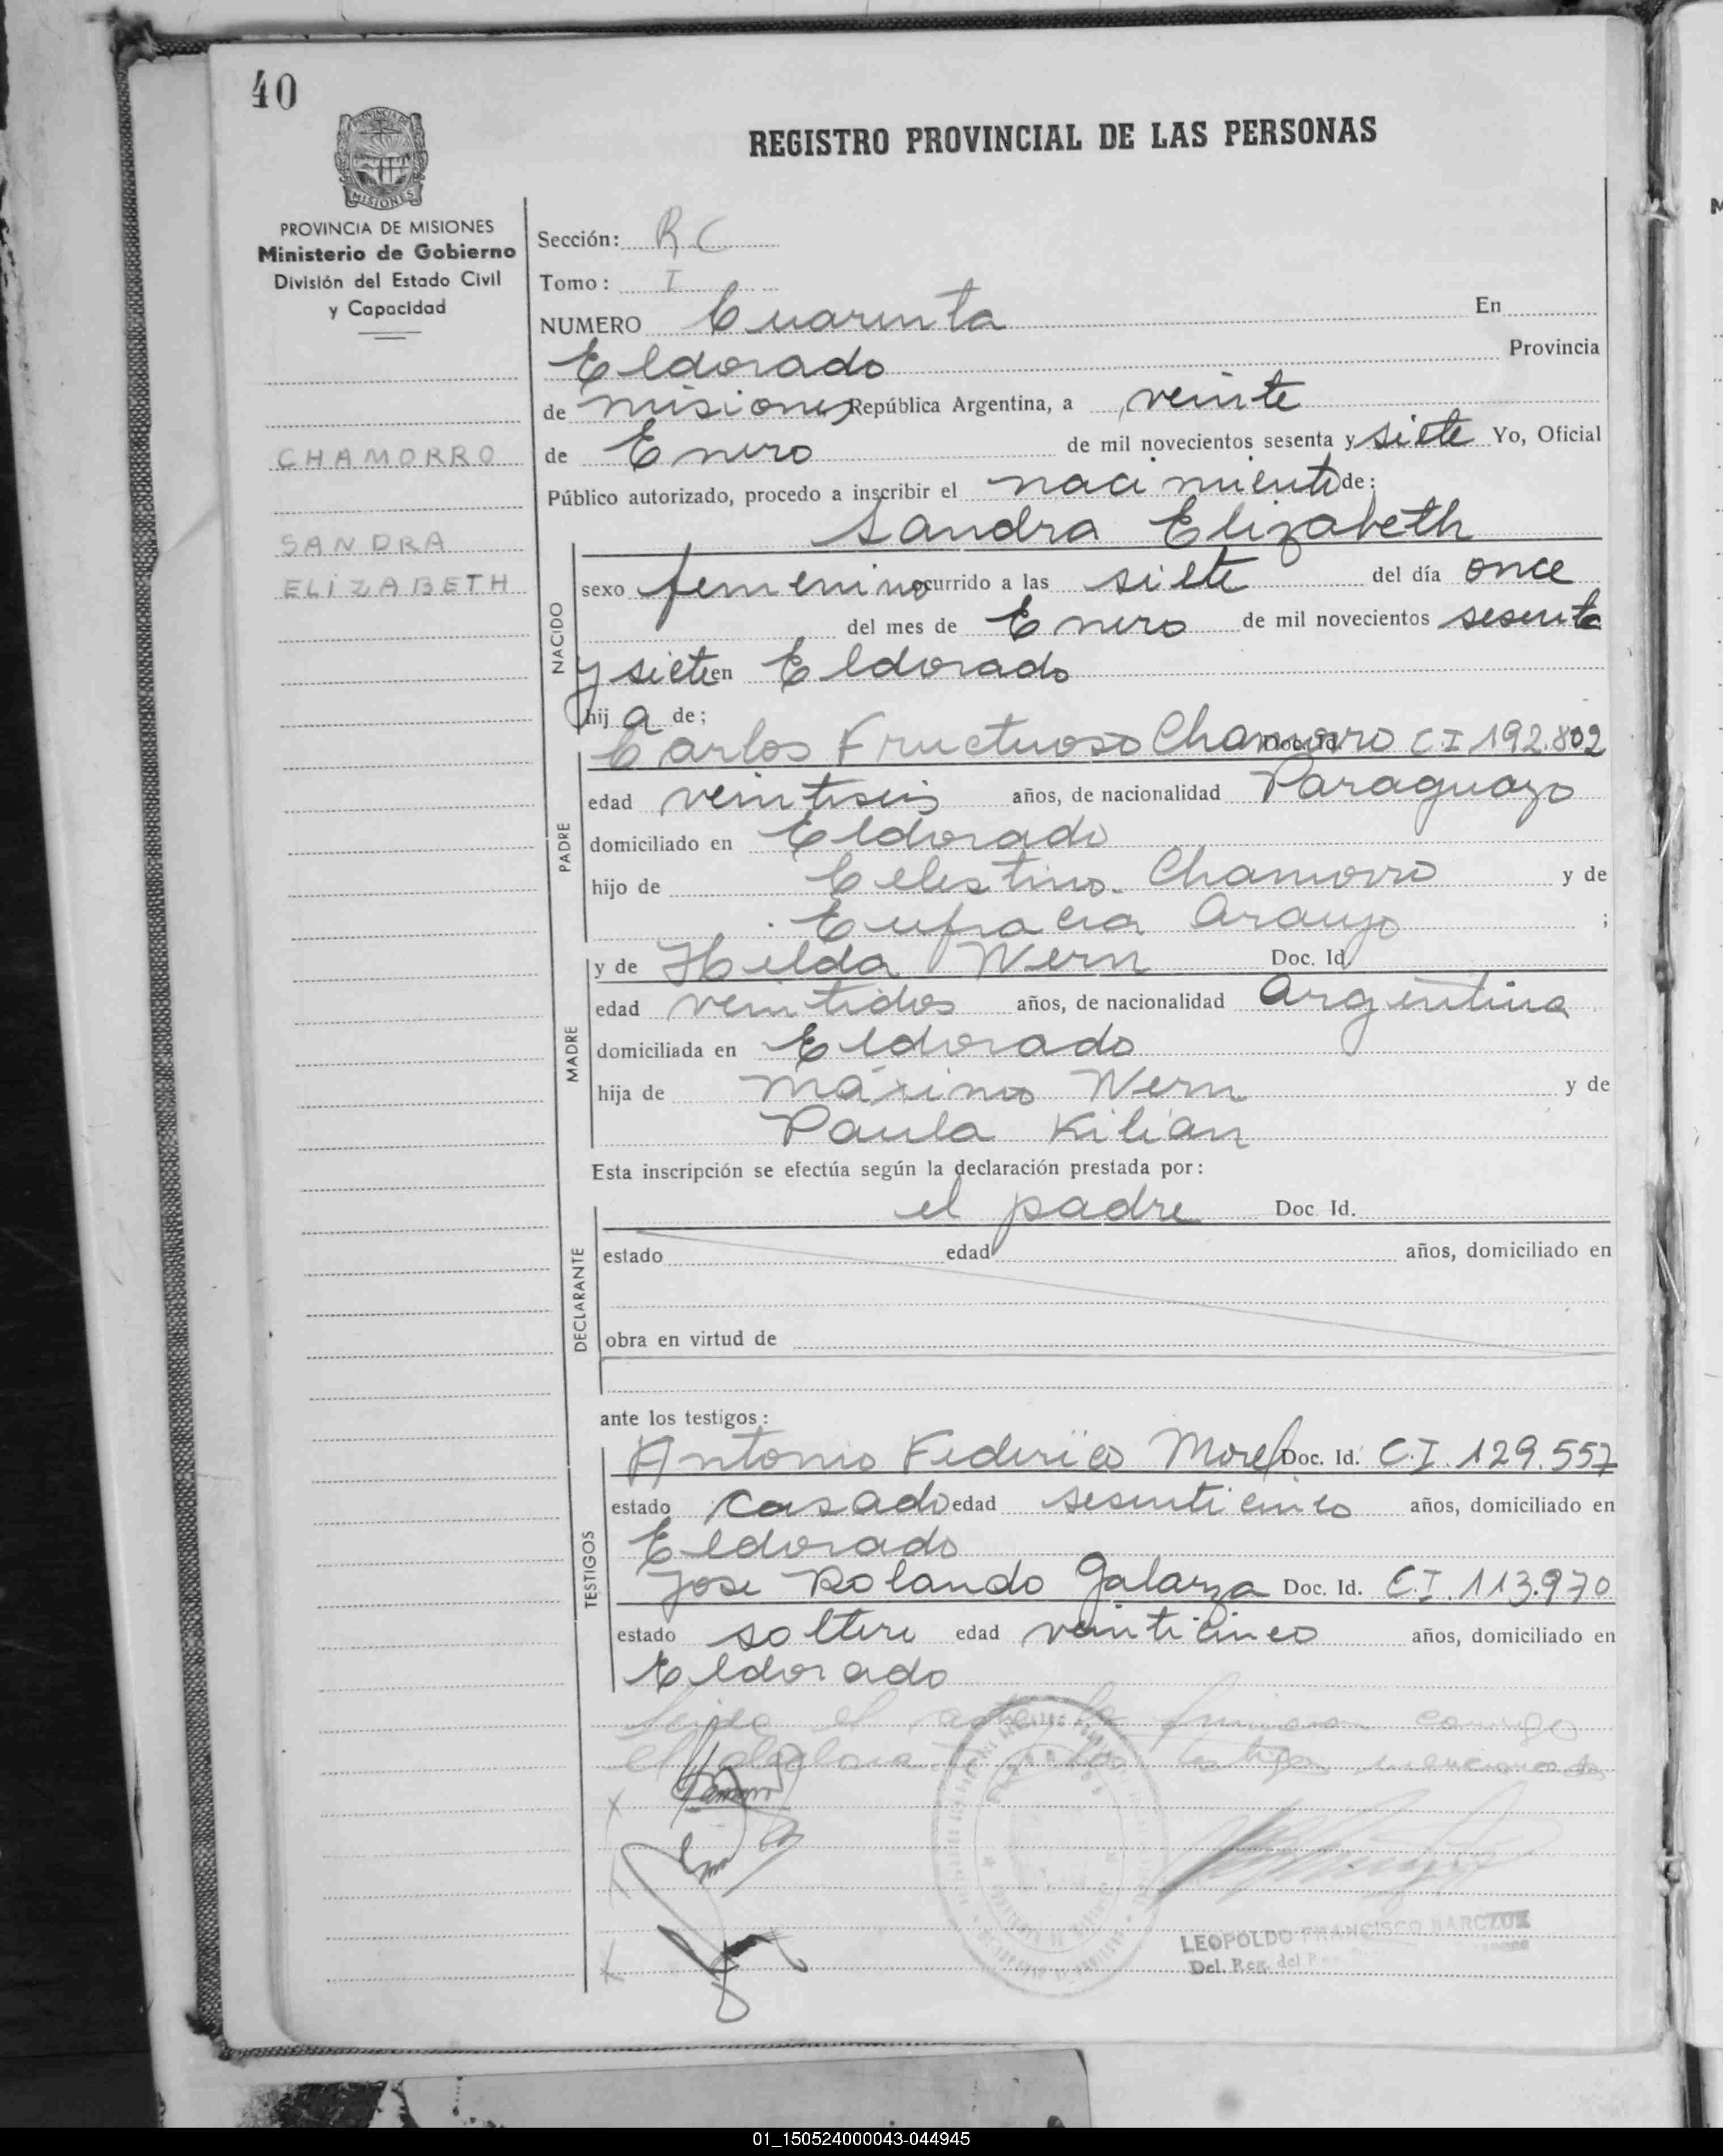 40
REGISTRO PROVINCIAL DE LAS PERSONAS
MISIONES
PROVINCIA DE MISIONES
Ministerio de Gobierno
División del Estado Civil
y Capacidad
CHAMORRO
SANDRA
ELIZABETH
Sección: R C
Tomo: I
NUMERO Cuarenta En
Eldorado Provincia
de Misiones República Argentina, a veinte
de Enero de mil novecientos sesenta y siete Yo, Oficial
Público autorizado, procedo a inscribir el nacimiento de:
Sandra Elizabeth
NACIDO
sexo femenino ocurrido a las siete del día once
del mes de Enero de mil novecientos sesenta
y siete en Eldorado
hij a de;
PADRE
Carlos Fructuoso Chamorro Doc. Id. C I 192.802
edad veintiseis años, de nacionalidad Paraguayo
domiciliado en Eldorado
hijo de Celestino Chamorro y de
Eufracia Araujo ;
MADRE
y de Hilda Wern Doc. Id
edad veintidos años, de nacionalidad Argentina
domiciliada en Eldorado
hija de Máximo Wern y de
Paula Kilian
Esta inscripción se efectúa según la declaración prestada por:
DECLARANTE
el padre Doc. Id.
estado edad años, domiciliado en
obra en virtud de
ante los testigos:
TESTIGOS
Antonio Federico Morel Doc. Id. C.I. 129.557
estado casado edad sesenticinco años, domiciliado en
Eldorado
Jose Rolando Galarza Doc. Id. C.I. 113.970
estado soltero edad veinticinco años, domiciliado en
Eldorado
el acta la firman conmigo
el los testigos mencionados
LEOPOLDO FRANCISCO BARCZUK
Del. Reg. del
01_150524000043-044945